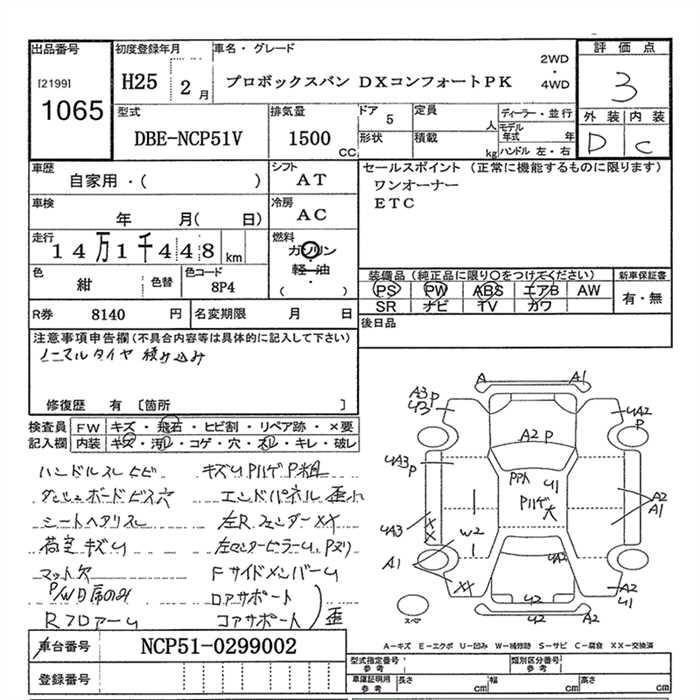 出品番号 初度登録年月 車名・グレード 評価点
[2199] 1065 H25 2月 プロボックスバン DXコンフォートPK 2WD・4WD 3
外装 内装
D C
型式 排気量 ドア 定員 ディーラー・並行
DBE-NCP51V 1500 CC 5 人 モデル年式 年
形状 積載 kg ハンドル 左・右
車歴 シフト セールスポイント (正常に機能するものに限ります)
自家用・( ) AT ワンオーナー
ETC
車検 冷房
年 月( 日) AC
走行 燃料
14万1千448km ガソリン・軽油
( )
色 色替 色コード
紺 8P4
装備品(純正品に限り〇をつけてください) 新車保証書
PS PW ABS エアB AW 有・無
SR ナビ TV カワ
R券 8140 円 名変期限 月 日 後日品
注意事項申告欄(不具合内容等は具体的に記入して下さい)
ノーマルタイヤ積り込み
修復歴 有 〔箇所 〕
検査員記入欄 FW キズ・飛石・ヒビ割・リペア跡・×要
内装 キズ・汚レ・コゲ・穴・スレ・キレ・破レ
ハンドルスレ ヒビ キズU Pハゲ P粗
ダッシュボードビス穴 エンドパネル 歪小
シートヘタリスレ 左R.フェンダーXX
荷室 キズU 左センターピラーU. Pスリ
マット欠 FサイドメンバーU
P/W D席のみ ロアサポート
RフロアーU コアサポート 歪
A A1
A3 P U3 UA2 P
A2 P
UA3 P PPハ U1
Pハゲ 大
A2 A1
UA3 XX W2
A1 UA2
XX A2 U1
U2 U2
スペア
A-キズ E-エクボ U-凹み W-補修跡 S-サビ C-腐食 XX-交換済
車台番号 NCP51-0299002
登録番号
型式指定番号 参考 類別区分番号 参考
車庫証明用 参考 長さ cm 幅 cm 高さ cm